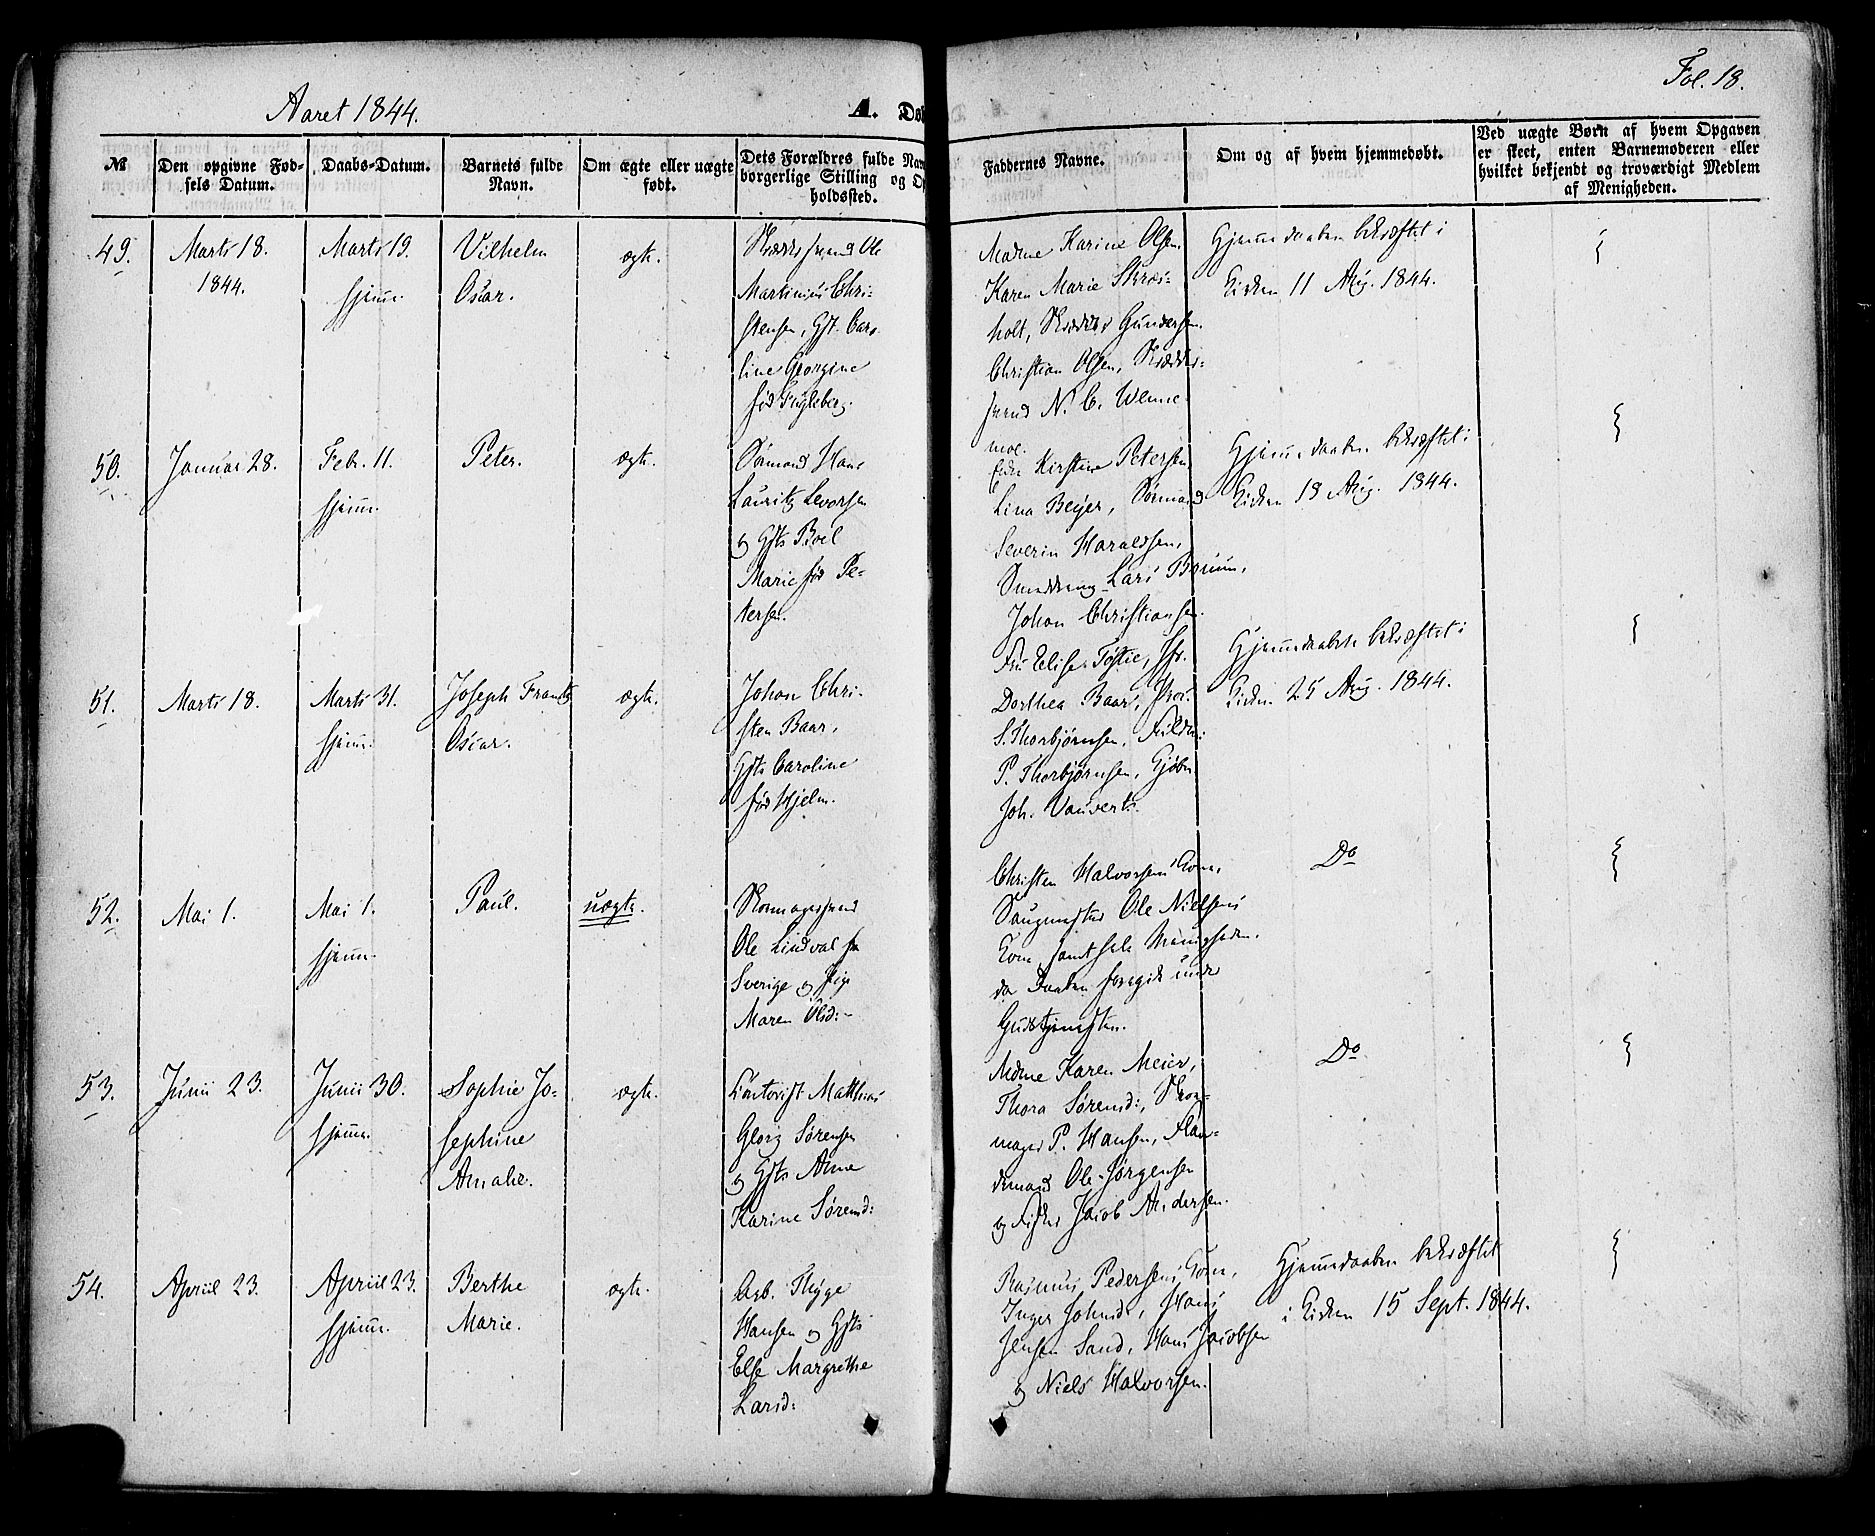 Aaret 1844.
A.
Fol. 18.
№
Den opgivne Fød-
sels Datum.
Daabs-Datum.
Barnets fulde
Navn.
Om ægte eller uægte
født.
Dets Forældres fulde Nav
borgerlige Stilling og Op
holdssted.
Faddernes Navne.
Om og af hvem hjemmedøbt.
Ved uægte Børn af hvem Opgaven
er skeet, enten Barnemoderen eller
hvilket bekjendt og troværdigt Medlem
af Menigheden.
49.
Marts 18.
1844.
Marts 19.
hjem.
Vilhelm
Oscar.
ægte.
Ole
Martinius Chri-
stensen, Gft. Caro
line Georgine
fød Fugleberg.
Madme Karine Olsen.
Karen Marie
holt, Gundersen.
Christian Olsen,
svend N. C. Wenne-
moe.
Hjemmedaaben bekræftet i
Kirken 11 Aug. 1844.
50.
Januar 28.
Febr. 11.
hjem.
Peter.
ægte.
Sømand Hans
Lauritz Levorsen
og Gfts Boel
Marie fød Pe-
tersen.
Kirstine Petersen
Lina Beyer, Sømand
Severin Haraldsen,
Lars Bruun,
Johan Christiansen.
Hjemmedaaben bekræftet i
Kirken 18 Aug. 1844.
51.
Marts 18.
Marts 31.
hjem.
Joseph Frantz
Oscar.
ægte.
Johan Chri-
sten Baar,
Gfts Caroline
fød Hjelm.
Fru Elise
Dorthea Baar,
S. Thorbjørnsen,
P. Thorbjørnsen,
Joh.
Hjemmedaaben bekræftet i
Kirken 25 Aug. 1844.
52.
Mai 1.
Mai 1.
hjem.
Paul.
uægte.
Skomagersvend
Ole Lindval fra
Sverige og Pige
Maren Olsd:
Christen Halvorsens Kone,
Ole Nielsens
Kone, samt hele Menigheden,
da Daaben foregik under
Gudstjenesten.
Do
53.
Junii 23.
Junii 30.
hjem.
Sophie Jo-
sephine
Amalie.
ægte.
Matthias
Georg Sørensen
og Gfts Anne
Karine Sørensd:
Mdme Karen Meier,
Thora Sørensd:, Skoe-
mager P. Hansen,
Ole Jørgensen
og Fisker Jacob Andersen.
Do
54.
Apriil 23.
Apriil 23.
hjem.
Berthe
Marie.
ægte.
Arb. Thyge
Hansen og Gfts
Else Margrethe
Larsd:
Rasmus Pedersens Kone,
Inger Johnsd:, Hans
Jensen Sand, Hans Jacobsen
og Niels Halvorsen.
Hjemmedaaben bekræftet
i Kirken 15 Sept. 1844.